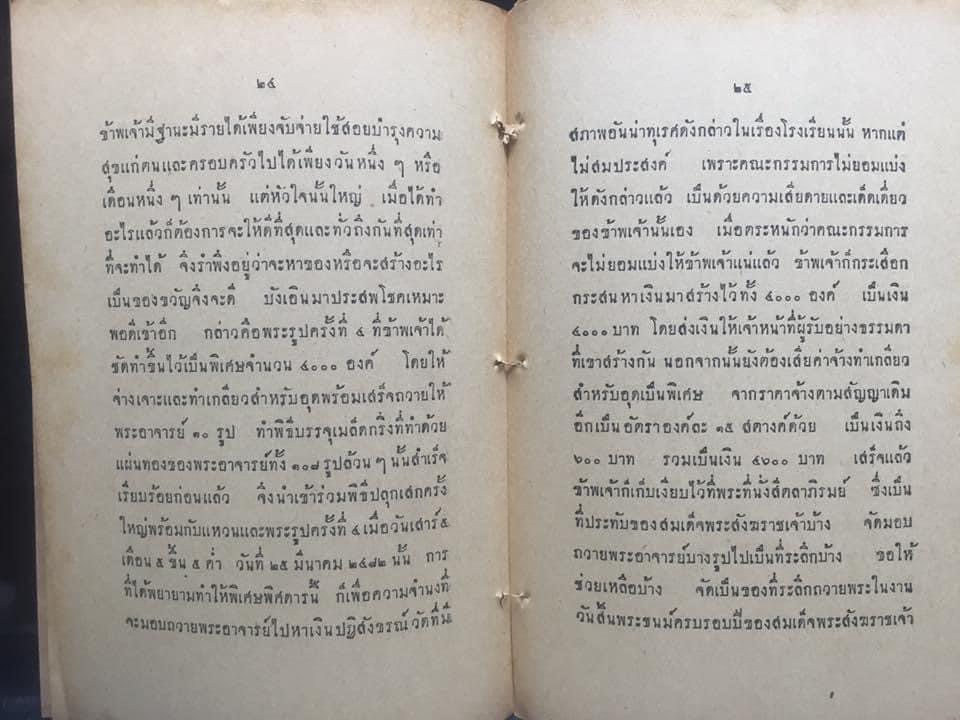 ๒๔
ข้าพเจ้ามีฐานะมีรายได้เพียงจับจ่ายใช้สอยบำรุงความ
สุขแก่ตนและครอบครัวไปได้เพียงวันหนึ่ง ๆ หรือ
เดือนหนึ่ง ๆ เท่านั้น แต่หัวใจนั้นใหญ่ เมื่อได้ทำ
อะไรแล้วก็ต้องการจะให้ดีที่สุดและทั่วถึงกันที่สุดเท่า
ที่จะทำได้ จึงรำพึงอยู่ว่าจะหาของหรือจะสร้างอะไร
เป็นของขวัญจึงจะดี บังเอินมาประสพโชคเหมาะ
พอดีเข้าอีก กล่าวคือพระรูปครั้งที่ ๔ ที่ข้าพเจ้าได้
จัดทำขึ้นไว้เป็นพิเศษจำนวน ๔๐๐๐ องค์ โดยให้
จ่างเจาะและทำเกลียวสำหรับอุดพร้อมเสร็จถวายให้
พระอาจารย์ ๑๐ รูป ทำพิธีบรรจุเมล็ดกริ่งที่ทำด้วย
แผ่นทองของพระอาจารย์ทั้ง ๑๐๘ รูปล้วน ๆ นั้นสำเร็จ
เรียบร้อยก่อนแล้ว จึงนำเข้าร่วมพิธีปลุกเสกครั้ง
ใหญ่พร้อมกับแหวนและพระรูปครั้งที่ ๔ เมื่อวันเสาร์ ๕
เดือน ๕ ขึ้น ๕ ค่ำ วันที่ ๒๕ มีนาคม ๒๔๘๒ นั้น การ
ที่ได้พยายามทำให้พิเศษพิศดารนี้ ก็เพื่อความจำนงที่
จะมอบถวายพระอาจารย์ไปหาเงินปฏิสังขรณ์วัดที่มี
๒๕
สภาพอันน่าทุเรศดังกล่าวในเรื่องโรงเรียนนั้น หากแต่
ไม่สมประสงค์ เพราะคณะกรรมการไม่ยอมแบ่ง
ให้ดังกล่าวแล้ว เป็นด้วยความเสียดายและเด็ดเดี่ยว
ของข้าพเจ้านั้นเอง เมื่อตระหนักว่าคณะกรรมการ
จะไม่ยอมแบ่งให้ข้าพเจ้าแน่แล้ว ข้าพเจ้าก็กระเสือก
กระสนหาเงินมาสร้างไว้ทั้ง ๔๐๐๐ องค์ เป็นเงิน
๔๐๐๐ บาท โดยส่งเงินให้เจ้าหน้าที่ผู้รับอย่างธรรมดา
ที่เขาสร้างกัน นอกจากนั้นยังต้องเสียค่าจ้างทำเกลียว
สำหรับอุดเป็นพิเศษ จากราคาจ้างตามสัญญาเดิม
อีกเป็นอัตราองค์ละ ๑๕ สตางค์ด้วย เป็นเงินถึง
๖๐๐ บาท รวมเป็นเงิน ๔๖๐๐ บาท เสร็จแล้ว
ข้าพเจ้าก็เก็บเงียบไว้ที่พระที่นั่งสีตลาภิรมย์ ซึ่งเป็น
ที่ประทับของสมเด็จพระสังฆราชเจ้าบ้าง จัดมอบ
ถวายพระอาจารย์บางรูปไปเป็นที่ระลึกบ้าง ขอให้
ช่วยเหลือบ้าง จัดเป็นของที่ระลึกถวายพระในงาน
วันสิ้นพระชนม์ครบรอบปีของสมเด็จพระสังฆราชเจ้า